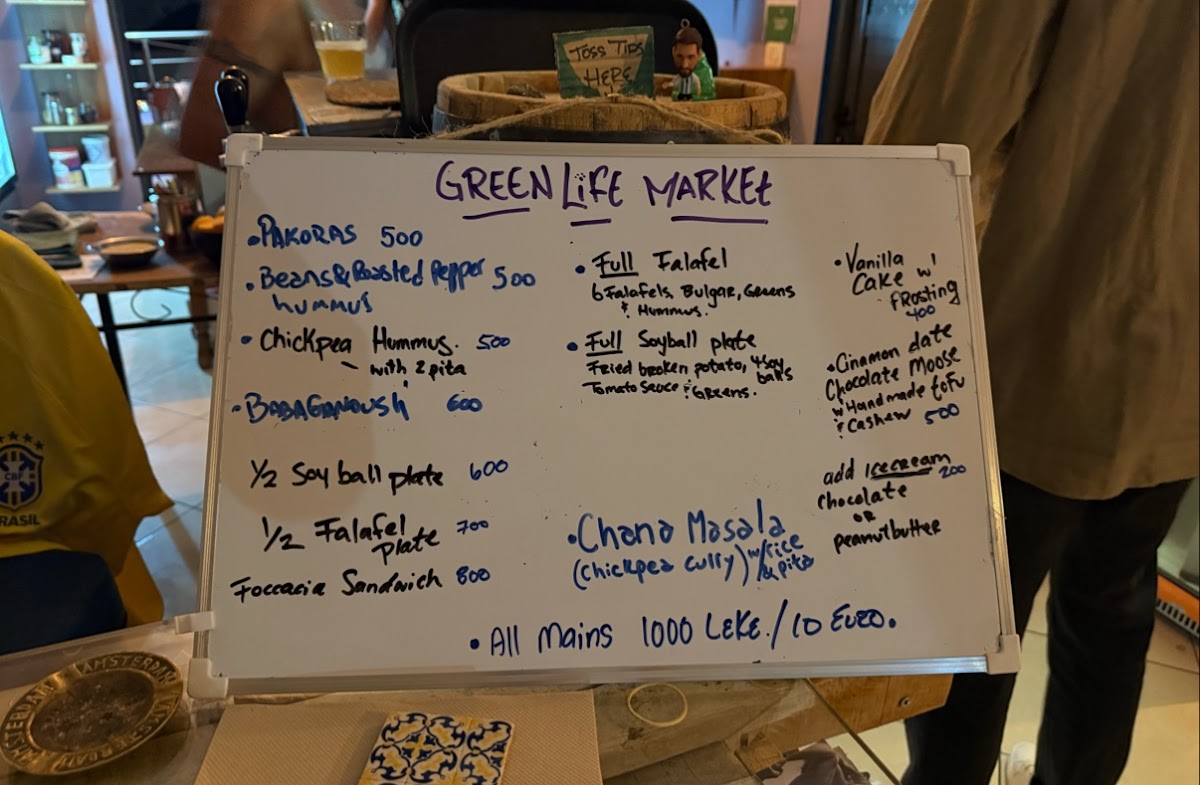 TOSS TIPS
HERE
GREEN LIFE MARKET
• PAKORAS 500
• Beans & Roasted Pepper 500
hummus
• Chickpea Hummus. 500
with 2 pita
• BABAGANOUSH 600
1/2 Soy ball plate 600
1/2 Falafel 700
plate
Foccacia Sandwich 800
• Full Falafel
6 Falafels, Bulgar, Greens
& Hummus.
• Full Soyball plate
Fried broken potato, 4 soy
balls
Tomato Sauce & Greens.
• Chana Masala
(chickpea curry) w/ rice
& pita
• Vanilla
Cake w/
FRosting
400
• Cinamon date
Chocolate Moose
w Handmade tofu
& Cashew 500
add icecream
200
chocolate
OR
peanutbutter
• All Mains 1000 LEKE. / 10 EURO.
CBF
BRASIL
AMSTERDAM
AMSTERDAM